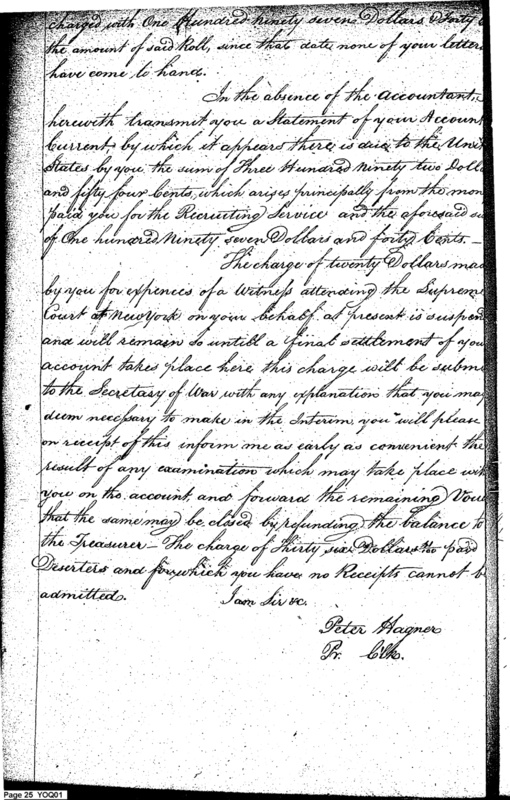 charged with One Hundred ninety seven Dollars & Forty
the amount of said Roll, since that date none of your letter
have come to hand.
In the absence of the Accountant,
herewith transmit you a Statement of your Account
Current, by which it appears there is due to the Unit
States by you the sum of Three Hundred Ninety two Doll
and fifty four Cents, which arises principally from the mon
paid you for the Recruiting Service and the aforesaid su
of One hundred Ninety seven Dollars and forty Cents.—
The charge of twenty Dollars mad
by you for expences of a Witness attending the Suprem
Court at New York on your behalf at present is suspen
and will remain so untill a final settlement of you
account takes place here this charge will be subm
to the Secretary of War with any explanation that you may
deem necessary to make in the Interim, you will please
on receipt of this inform me as early as convenient the
result of any examination which may take place wit
you on the account, and forward the remaining Vouc
that the same may be closed by refunding the balance to
the Treasurer— The charge of Thirty six Dollars paid
Deserters and for which you have no Receipts cannot b
admitted.
I am Sir &c.
Peter Hagner
Pr. Clk.
Page 25 YOQ01